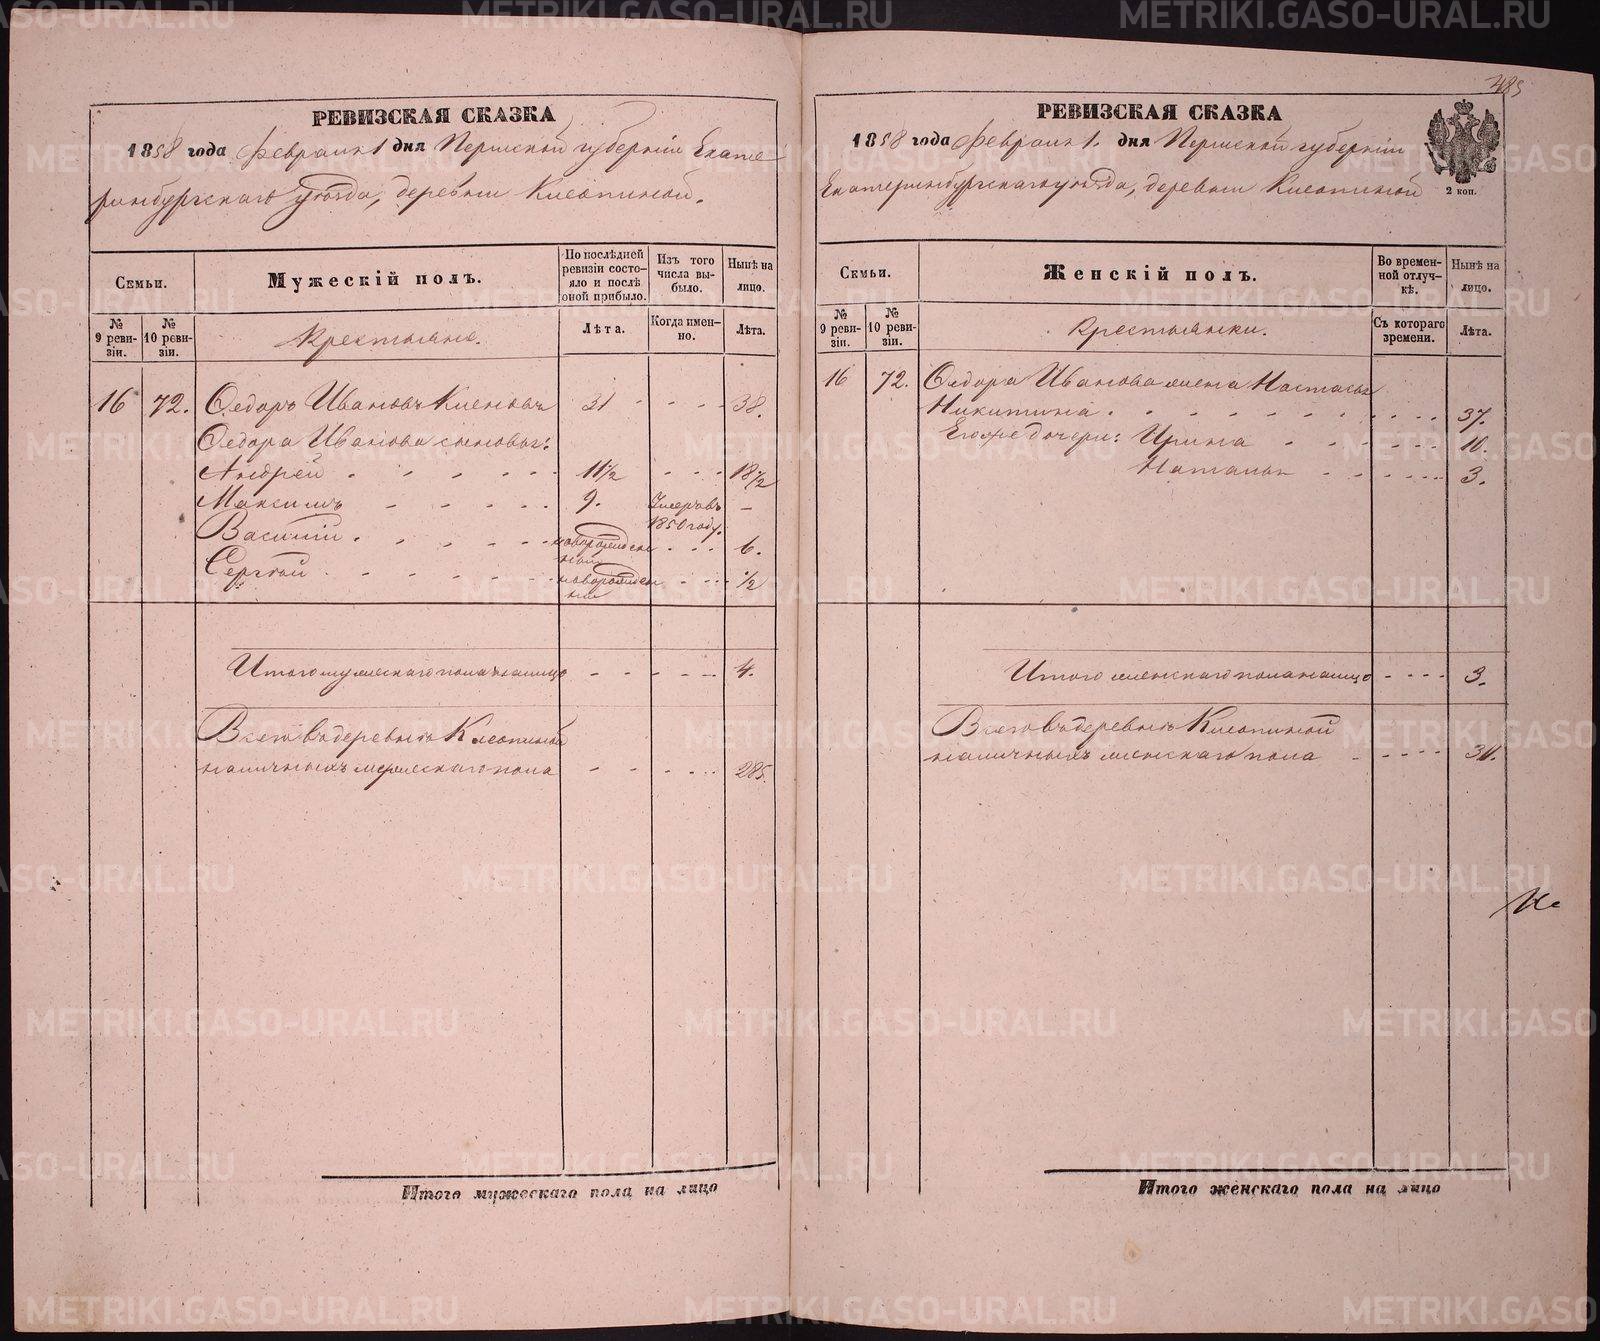 485
РЕВИЗСКАЯ СКАЗКА
1858 года Февраля 1 дня Пермской губернiи Екате
ринбургскаго уѣзда, деревни Клеопиной.
Семьи.
Мужескiй полъ.
По послѣдней ревизiи состо- яло и послѣ оной прибыло.
Изъ того числа вы- было.
Нынѣ на лицо.
№ 9 реви- зiи.
№ 10 реви- зiи.
Крестьяне.
Лѣта.
Когда имен- но.
Лѣта.
16 72. Ѳедоръ Ивановъ 31 - - - - 38.
Ѳедора Иванова сыновья:
Андрей - - - - - 11½ - - - 18½
Максимъ - - - - - 9. Умеръ въ 1850 году. -
Василiй - - - - - новорожден ный - - - 6.
Сергѣй - - - - - новорожден ный - - - ½
Итого мужескаго пола на лицо - - - - - 4.
Всего въ деревнѣ Клеопиной
наличныхъ мужескаго пола - - - - - 285.
Итого мужескаго пола на лицо
РЕВИЗСКАЯ СКАЗКА
1858 года Февраля 1. дня Пермской губернiи
Екатеринбургскаго уѣзда, деревни Клеопиной
2 коп.
Семьи.
Женскiй полъ.
Во времен- ной отлуч- кѣ.
Нынѣ на лицо.
№ 9 реви- зiи.
№ 10 реви- зiи.
Крестьянки.
Съ котораго времени.
Лѣта.
16 72. Ѳедора Иванова жена Настасья
Никитина - - - - - - - - 37.
Его же дочери: Ирина - - - - - 10.
Наталья - - - - - 3.
Итого женскаго пола на лицо - - - - 3.
Всего въ деревнѣ Клеопиной
наличныхъ женскаго пола - - - - -
Итого женскаго пола на лицо
METRIKI.GASO-URAL.RU